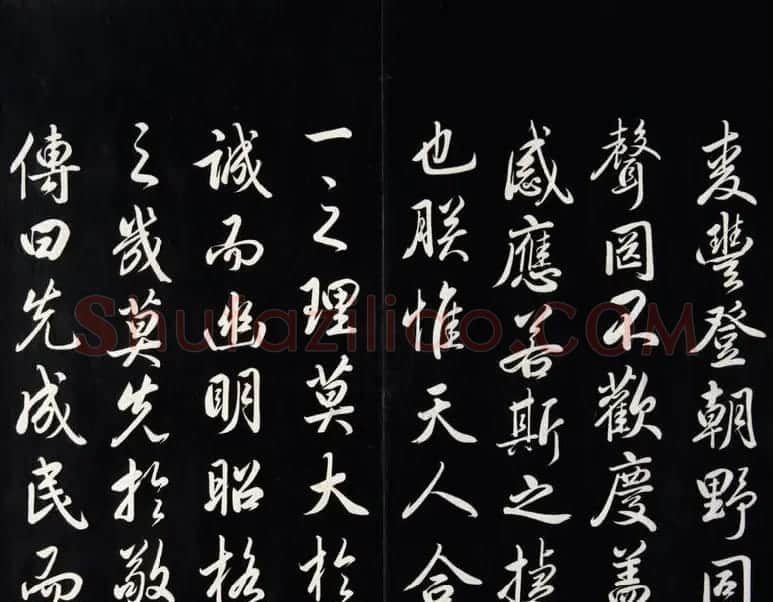 麦豐登朝野同
聲罔不歡慶盖
感應若斯之捷
也朕惟天人合
一之理莫大於
誠而幽明昭格
之幾莫先於敬
傳曰先成民而
Shufaziliao.COM